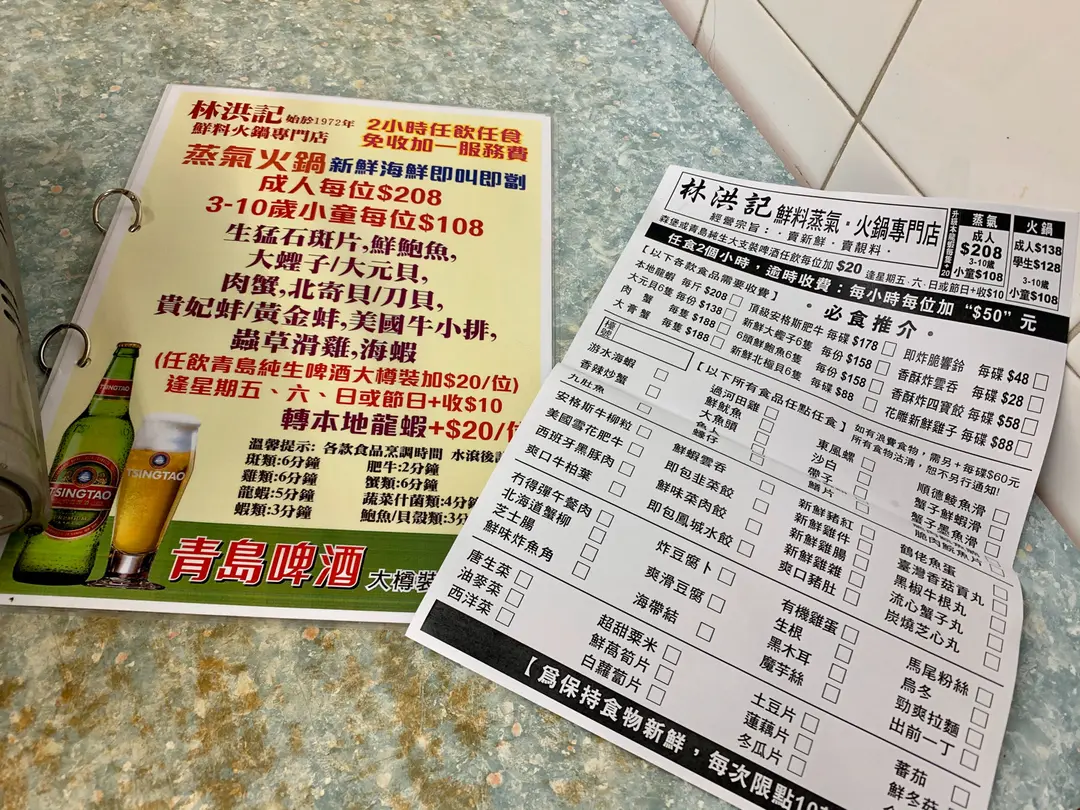 林洪記 始於1972年
鮮料火鍋專門店
2小時任飲任食
免收加一服務費
蒸氣火鍋 新鮮海鮮即叫即劏
成人每位$208
3-10歲小童每位$108
生猛石斑片,鮮鮑魚,
大蟶子/大元貝,
肉蟹,北寄貝/刀貝,
貴妃蚌/黃金蚌,美國牛小排,
蟲草滑雞,海蝦
(任飲青島純生啤酒大樽裝加$20/位)
逢星期五、六、日或節日+收$10
轉本地龍蝦+$20/
溫馨提示: 各款食品烹調時間 水滾後
斑類:6分鐘 肥牛:2分鐘
雞類:6分鐘 蟹類:6分鐘
龍蝦:5分鐘 蔬菜什菌類:4分
蝦類:3分鐘 鮑魚/貝殼類:3
TSINGTAO
TSINGTAO
TSINGTAO
青島啤酒 大樽裝
林洪記 鮮料蒸氣·火鍋專門店
經營宗旨:·賣新鮮·賣靚料·
森堡或青島純生大支裝啤酒任飲每位加 $20 逢星期五·六·日或節日+收$10
蒸氣
成人
$208
3-10歲
小童$108
火鍋
成人$138
學生$128
3-10歲
小童$108
任食2個小時,逾時收費:每小時每位加 “$50” 元
【以下各款食品需要收費】
·必食推介·
本地龍蝦 每斤 $208
大元貝6隻 每份 $138
肉蟹 每隻 $188
大膏蟹 每隻 $188
頂級安格斯肥牛 每碟 $178
新鮮大蟶子6隻 每份 $158
6頭鮮鮑魚6隻 每份 $158
新鮮北極貝6隻 每碟 $88
即炸脆響鈴 每碟 $48
香酥炸雲吞 每碟 $28
香酥炸四寶餃 每碟 $58
花雕新鮮雞子 每碟 $88
檯號
【以下所有食品任點任食】
如有浪費食物,需另+每碟$60元
所有食物沽清,恕不另行通知!
游水海蝦
香辣炒蟹
過河田雞
鮮魷魚
大魚頭
蠔仔
東風螺
沙白
帶子
鱔片
順德鯪魚滑
蟹子鮮蝦滑
蟹子墨魚滑
脆肉鯇魚片
九肚魚
安格斯牛柳粒
美國雪花肥牛
西班牙黑豚肉
爽口牛柏葉
鮮蝦雲吞
即包韭菜餃
鮮味菜肉餃
即包鳳城水餃
新鮮豬紅
新鮮雞件
新鮮雞腸
新鮮雞雜
爽口豬肚
鶴佬魚蛋
臺灣香菇貢丸
黑椒牛根丸
流心蟹子丸
炭燒芝心丸
冇得彈午餐肉
北海道蟹柳
芝士腸
鮮味炸魚角
炸豆腐卜
爽滑豆腐
海帶結
有機雞蛋
生根
黑木耳
魔芋絲
馬尾粉絲
烏冬
勁爽拉麵
出前一丁
唐生菜
油麥菜
西洋菜
超甜粟米
鮮萵筍片
白蘿蔔片
土豆片
蓮藕片
冬瓜片
蕃茄
鮮冬菇
【為保持食物新鮮,每次限點10